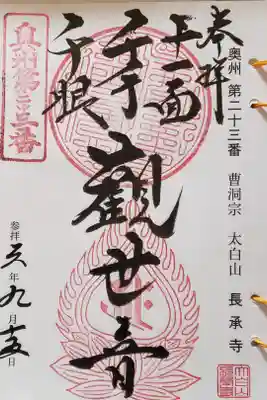 奉拝
奥州 第二十三番 曹洞宗 太白山 長承寺
十一面
千手
千眼
觀世音
奥州第二十三番
参拝 六年九月十五日